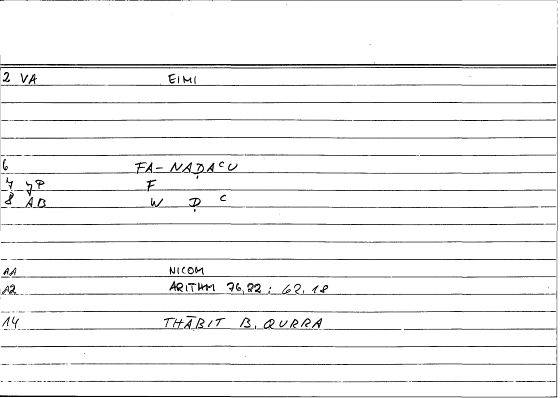 2 VA EIMI
6 FA- NAḌAᶜU
7 yP F
8 AB W Ḍ ᶜ
AA NICOM
A2 ARITHM 76,22 ; 62,18
14 THĀBIT B. QURRA